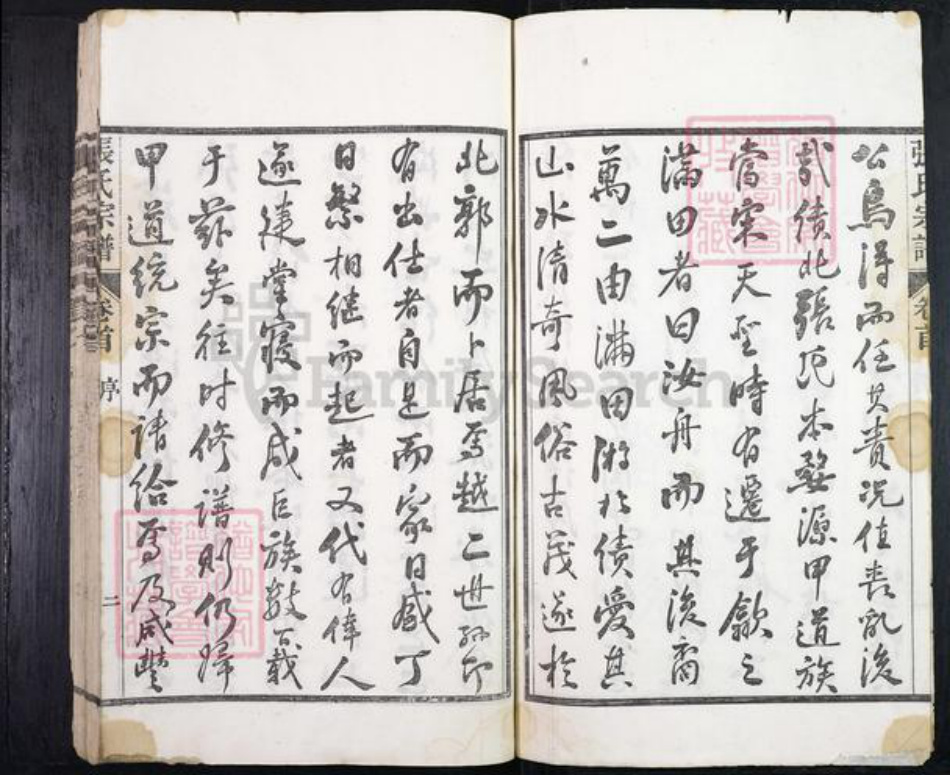 公烏得而任其責況值喪亂後
哉績北張氏本婺源甲道族
當宋天聖時有遷于歙之
滿田者曰汝舟而其後裔
萬二由滿田游於績愛其
山水清奇風俗古茂遂於
北郭而卜居焉越二世孫即
有出仕者自是而家日盛丁
日繁相繼而起者又代有偉人
遂建堂寢而成巨族數百載
于茲矣往時修譜則仍歸
甲道統宗而請給焉及咸豐
張氏宗譜 卷首 序 二
FamilySearch